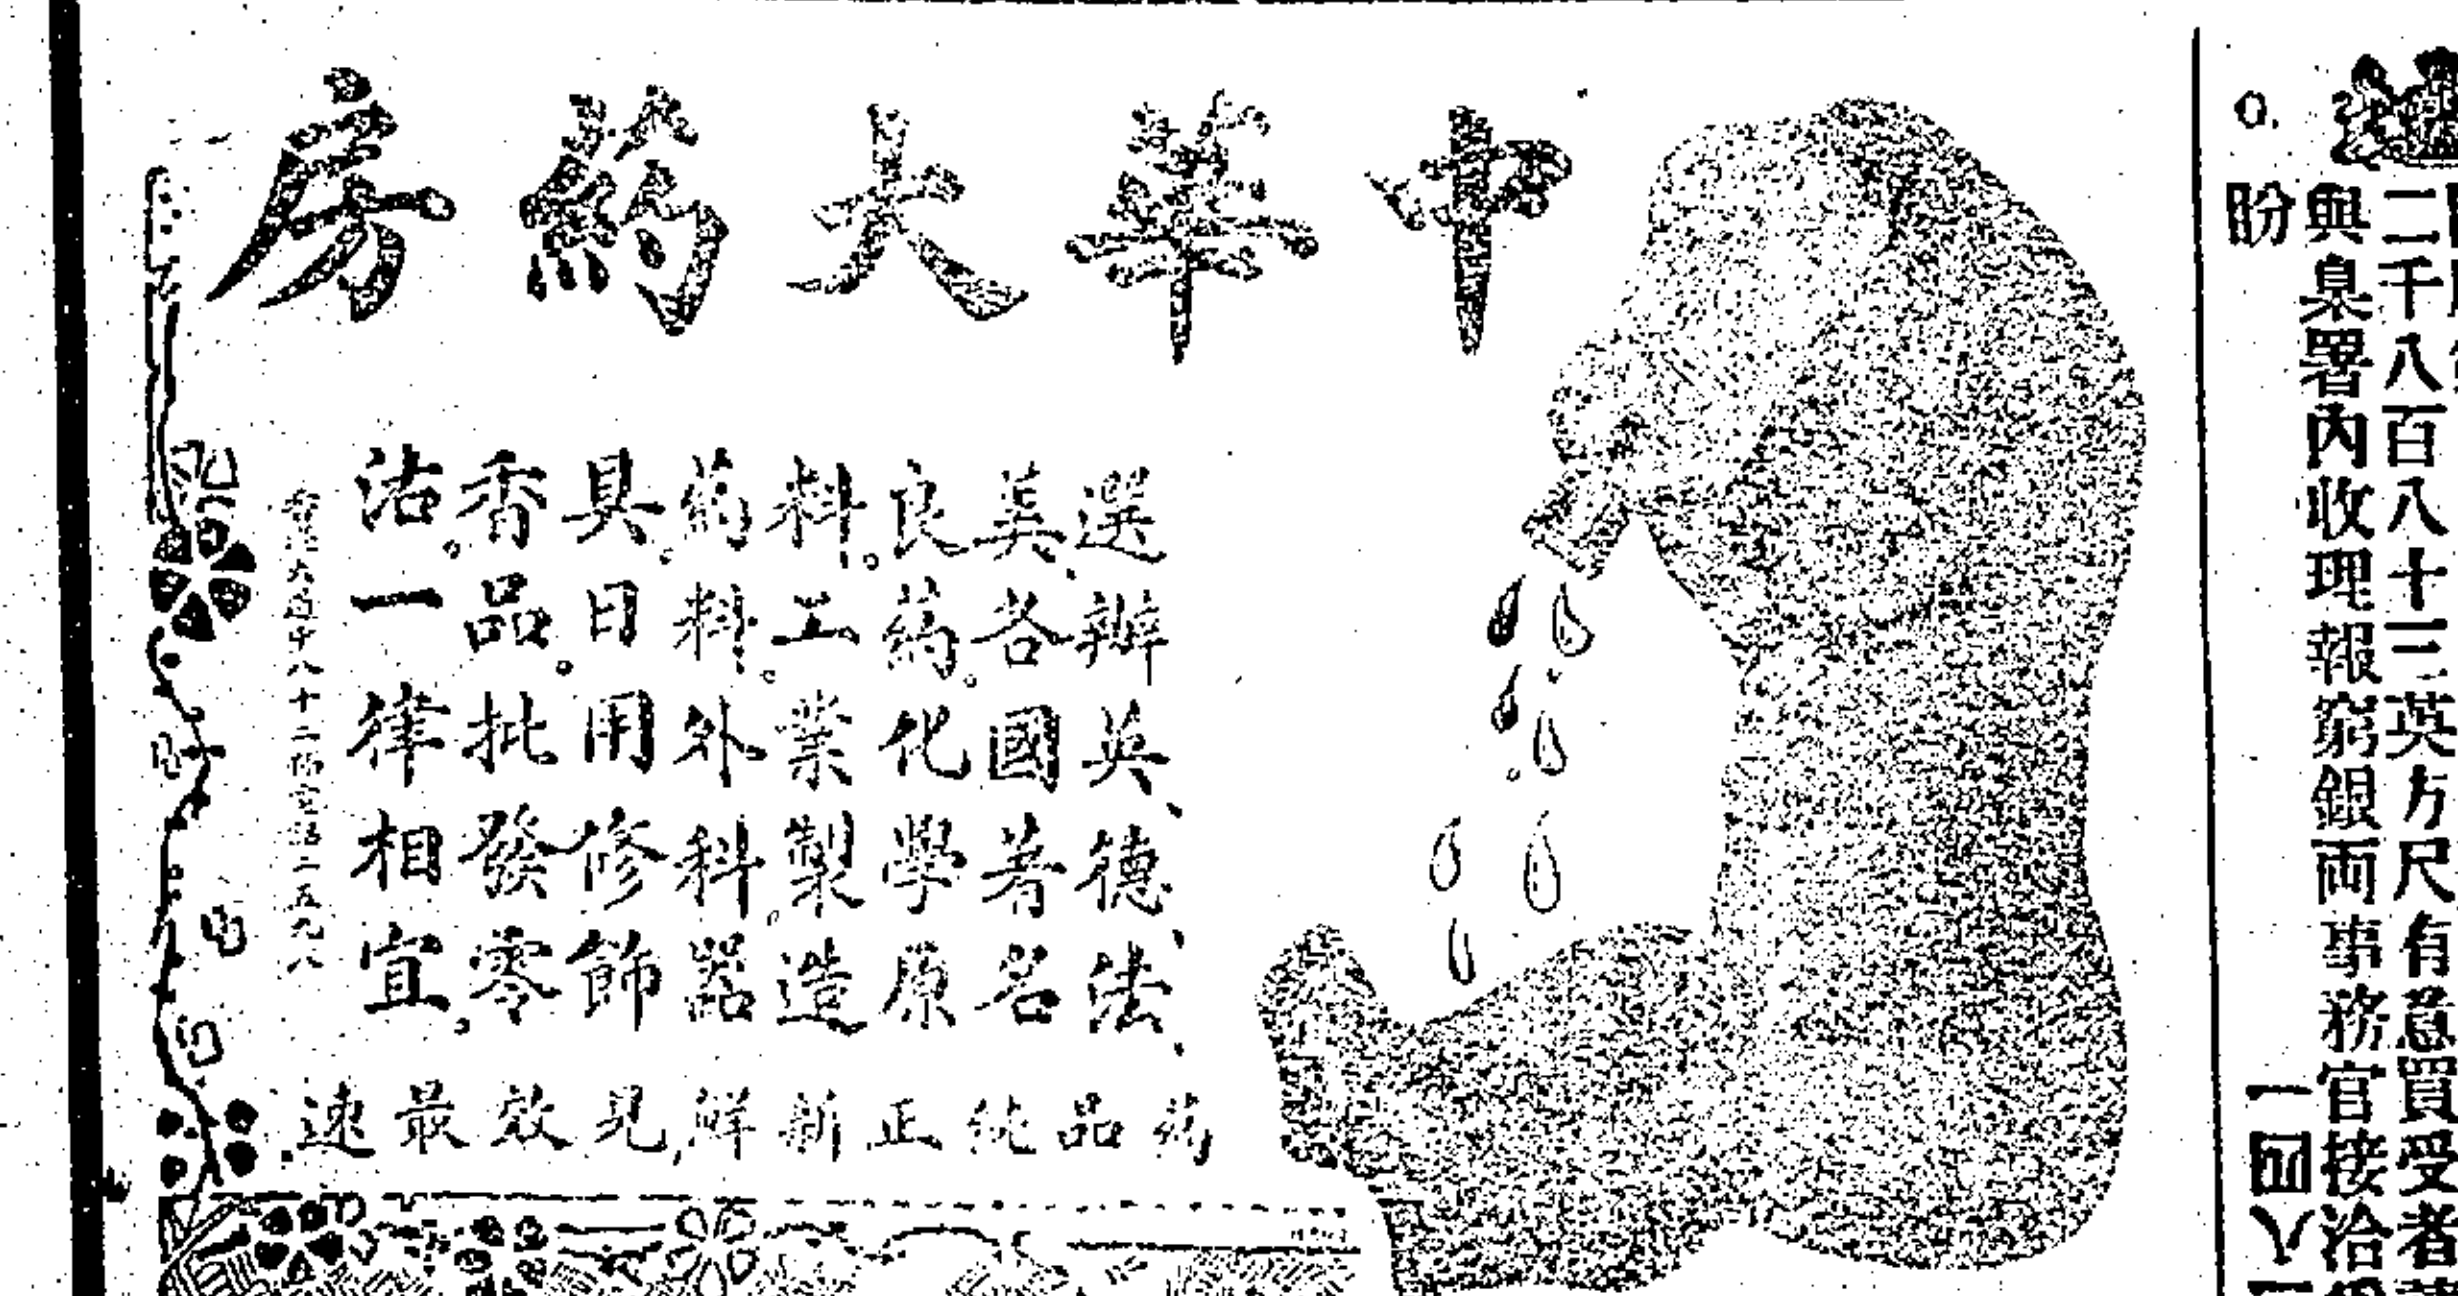 中華大葯房
選辦英、德、法、
美、各國著名
良葯。化學原
料。工業製造
葯料。外科。器
具。日用修飾
香品。批發零
沽。一律相宜。
八十二 電話二五九八
葯品純正新鮮,見效最速.
二千八百八十三英方尺有意買受者
與臬署內收理報窮銀両事務官接洽
盼